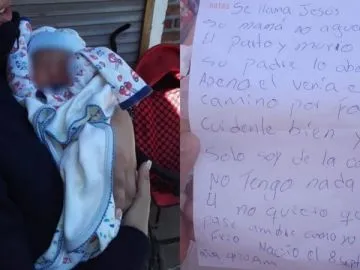 Se llama Jesus
su mamá no aguanto
El parto y murio
su padre lo abo
Apena el venia e
camino por fa
Cuidenle bien y
Solo soy de la c
No Tengo nada
y no quiero q
pase ambre como yo
Frio Nacio el 8 sept